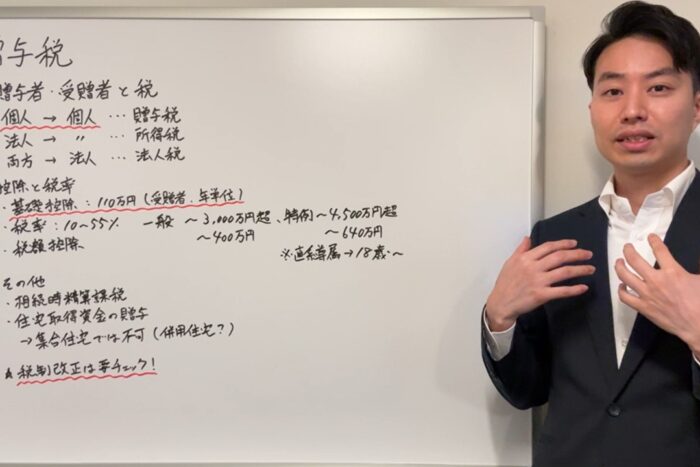 贈与税
贈与者・受贈者と税
個人 → 個人 … 贈与税
法人 → 〃 … 所得税
両方 → 法人 … 法人税
控除と税率
・基礎控除：110万円（受贈者、年単位）
・税率：10〜55% 一般 〜3,000万円超、特例〜4,500万円超
〜400万円 〜640万円
・税額控除 ※直系尊属→18歳〜
その他
・相続時精算課税
・住宅取得資金の贈与
→集合住宅では不可（併用住宅？）
税制改正は要チェック！